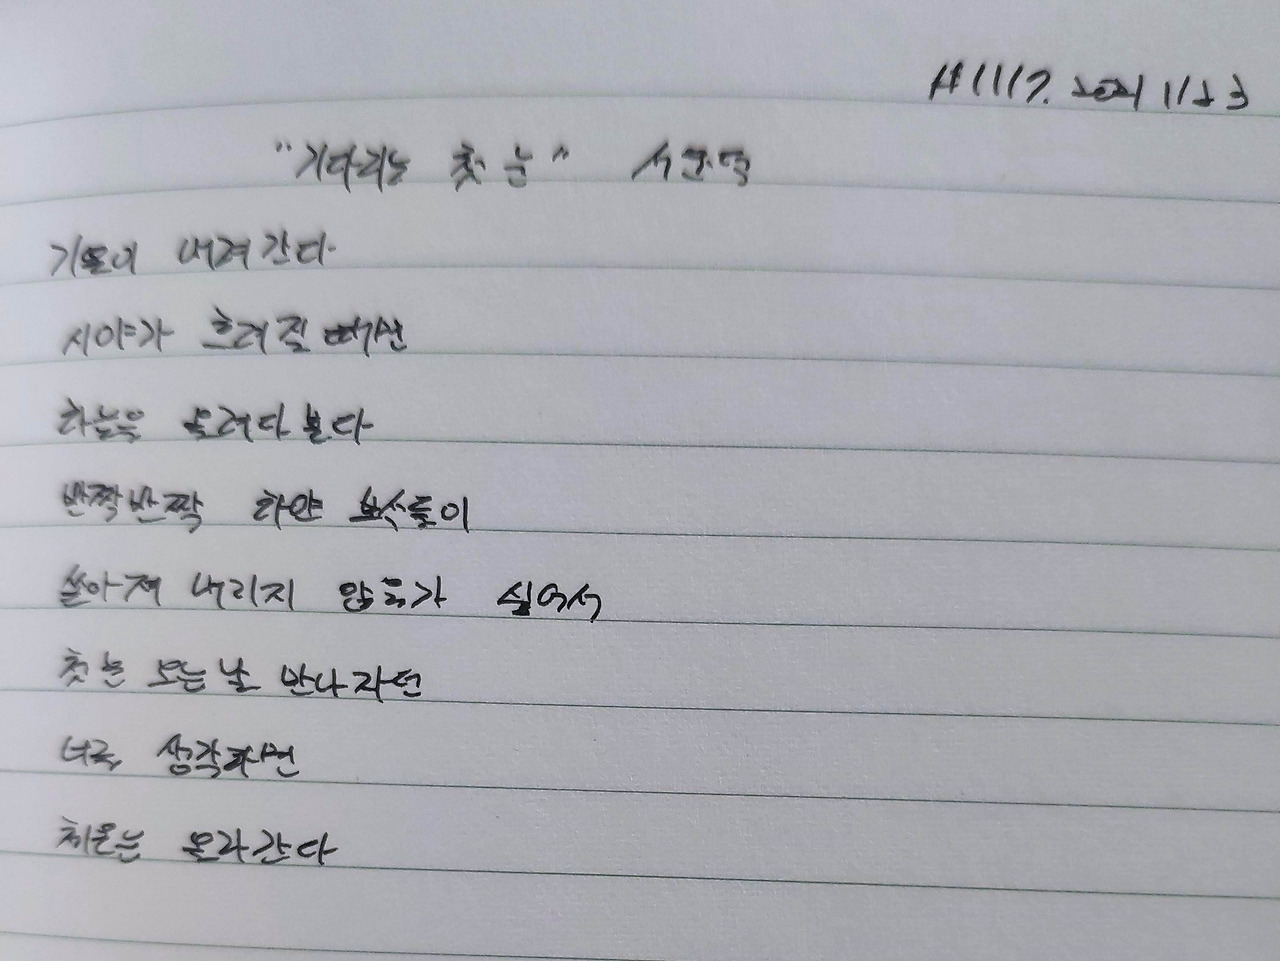 #1117. 2021 1123
"기다리는 첫 눈" 서
기온이 내려간다
시야가 흐려질 때면
하늘을 올려다 본다
반짝반짝 하얀 보석들이
쏟아져 내리지 않을까 싶어서
첫눈 오는 날 만나자던
너를 생각하면
체온은 올라간다